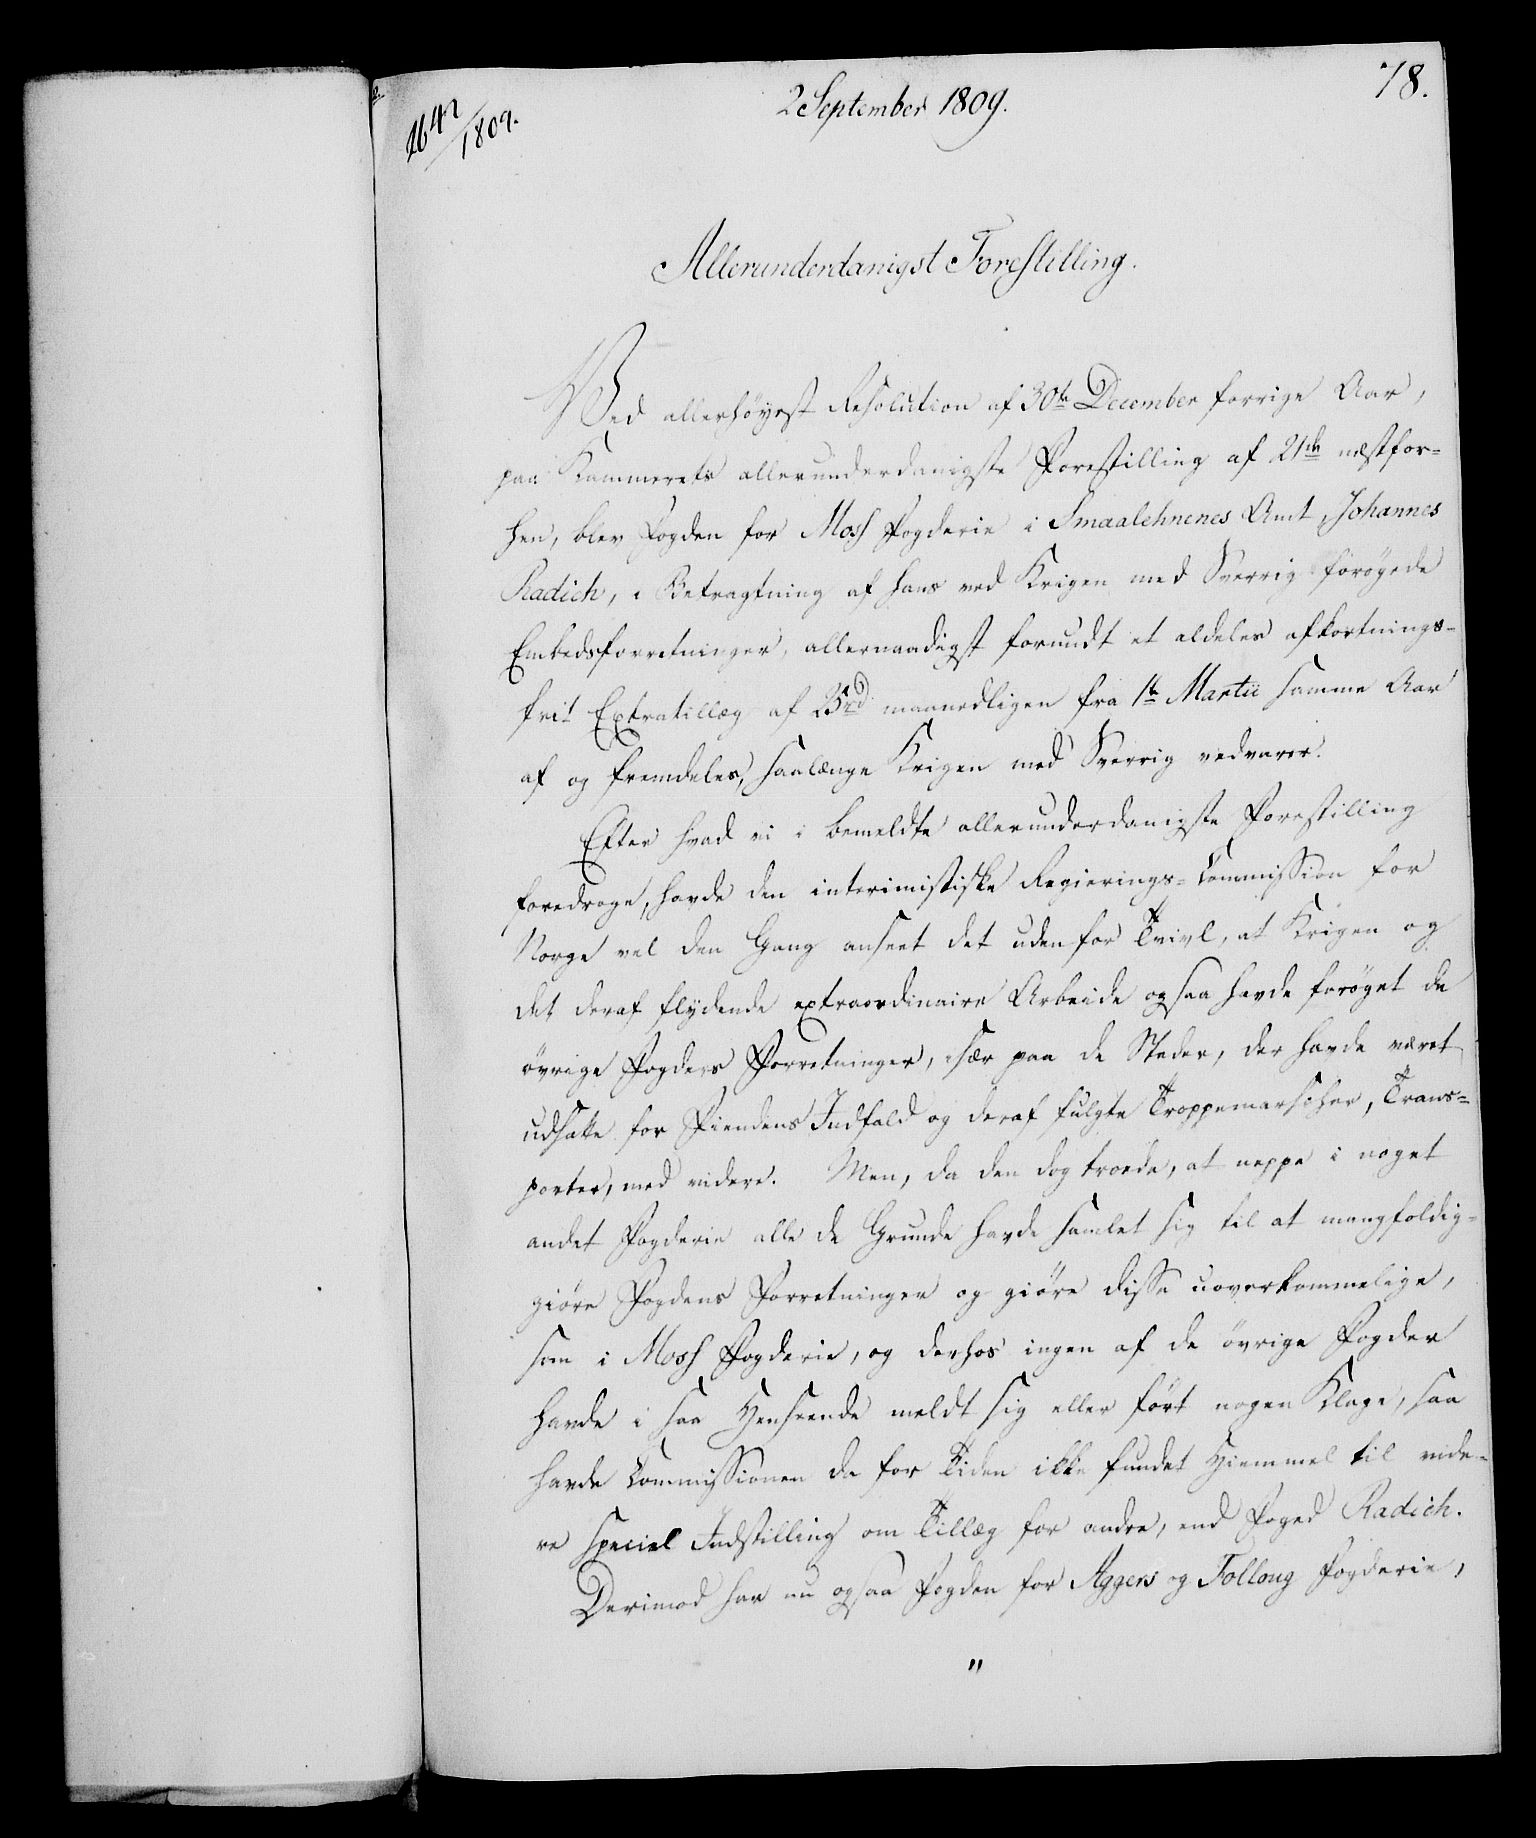 78.
2 September 1809.
1647/1809.
Allerunderdanigst Forestilling.
Ved allerhöyest Resolution af 30te December forrige Aar,
paa Kammerets allerunderdanigste Forestilling af 21de næstfor-
hen, blev Fogden for Moss Fogderie i Smaalehnenes Amt, Johannes
Radich, i Betragtning af hans ved Krigen med Sverrig forögede
Embedsforretninger, allernaadigst forundt et aldeles afkortnings-
frit Extratillæg af rd maanedligen fra 1te Martii samme Aar
af og fremdeles, saalænge Krigen med Sverrig vedvarer.
Efter hvad vi i bemeldte allerunderdanigste Forestilling
foredroge, havde den interimistiske Regierings-Commission for
Norge vel den Gang anseet det uden for Tvivl, at Krigen og
det deraf flydende extraordinaire Arbeide ogsaa havde foröget de
övrige Fogders Forretninger, især paa de Steder, der havde været
udsatte for Fiendens Indfald og deraf fulgte Troppemarscher, Trans-
porter, med videre. Men, da den dog troede, at neppe i noget
andet Fogderie alle de Grunde havde samlet sig til at mangfoldig-
giöre Fogdens Forretninger og giöre disse uoverkommelige,
som i Moss Fogderie, og derhos ingen af de övrige Fogder
havde i saa Henseende meldt sig eller fört nogen Klage, saa
havde Commissionen da for Tiden ikke fundet Hiemmel til vide-
re speciel Indstilling om Tillæg for andre, end Foged Radich.
Derimod har nu ogsaa Fogden for Aggers og Folloug Fogderie,
"